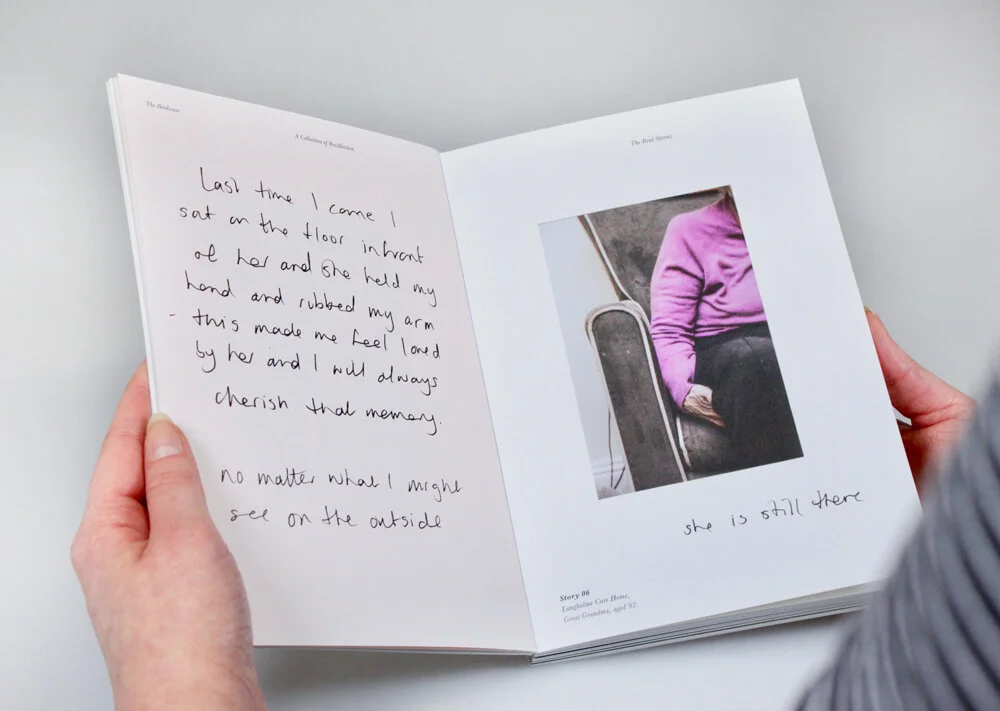 The Bookcase
A Collection of Recollection
Last time I came I
sat on the floor infront
of her and she held my
hand and rubbed my arm
- this made me feel loved
by her and I will always
cherish that memory.
no matter what I might
see on the outside
The Real Stories
she is still there
Story 06
Langholme Care Home,
Great Grandma, aged 92.